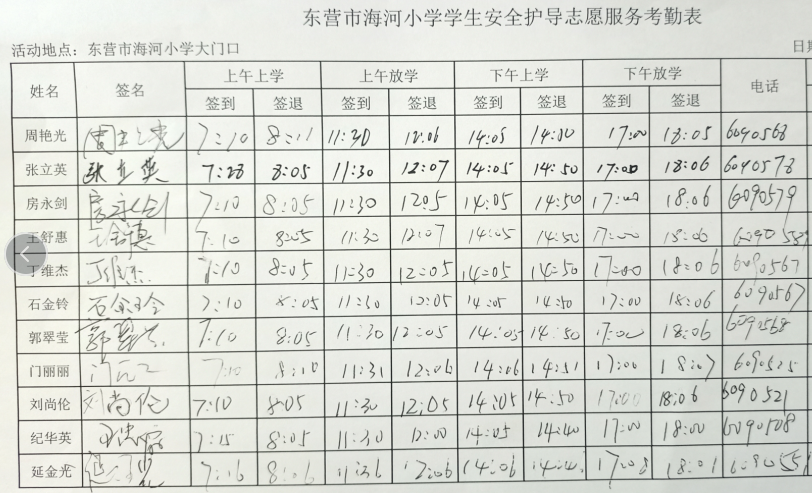 东营市海河小学学生安全护导志愿服务考勤表
活动地点：东营市海河小学大门口
姓名 签名 上午上学 上午放学 下午上学 下午放学 电话
签到 签退 签到 签退 签到 签退 签到 签退
周艳光 7:10 8:11 11:30 12:06 14:05 14:00 17:00 18:05 6090568
张立英 张立英 7:28 8:05 11:30 12:07 14:05 14:50 17:00 18:06 6090578
房永剑 房永剑 7:10 8:05 11:30 12:05 14:05 14:50 17:00 18:06 6090579
王舒惠 7:10 8:05 11:30 12:07 14:05 14:50 17:00 18:06
丁维杰 丁维杰 7:10 8:05 11:30 12:05 14:05 14:50 17:00 18:06 6090567
石金铃 石金玲 7:10 8:05 11:30 12:05 14:05 14:50 17:00 18:06 6090567
郭翠莹 7:10 8:05 11:30 12:05 14:05 14:50 17:00 18:06 6090568
门丽丽 7:10 8:10 11:31 12:06 14:06 14:51 17:00 18:07 6090525
刘尚伦 刘尚伦 7:10 8:05 11:30 12:05 14:05 14:50 17:00 18:06 6090521
纪华英 7:15 8:05 11:30 12:00 14:05 14:40 17:00 18:00 6090508
延金光 7:16 8:06 11:36 12:06 14:06 17:08 18:01